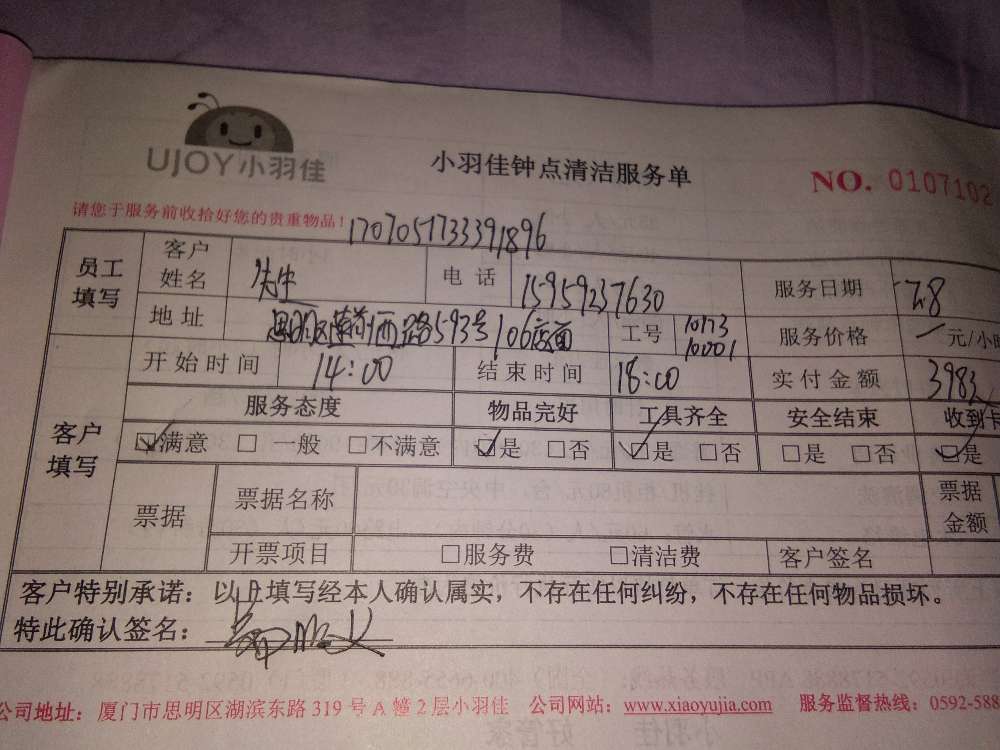 UJOY小羽佳
小羽佳钟点清洁服务单
NO. 0107102
请您于服务前收拾好您的贵重物品!
1707051733391896
员工填写 客户姓名 先生 电话 15959237630 服务日期 7.8
地址 思明区莆田西路593号106店面 工号 10173 10001 服务价格 元/小时
开始时间 14:00 结束时间 18:00 实付金额 3983
客户填写 服务态度 物品完好 工具齐全 安全结束 收到卡
☑满意 □一般 □不满意 ☑是 □否 ☑是 □否 □是 □否 ☑是
票据 票据名称 票据金额
开票项目 □服务费 □清洁费 客户签名
客户特别承诺：以上填写经本人确认属实，不存在任何纠纷，不存在任何物品损坏。
特此确认签名：
公司地址：厦门市思明区湖滨东路 319 号 A 幢 2 层小羽佳 公司网站：www.xiaoyujia.com 服务监督热线：0592-588